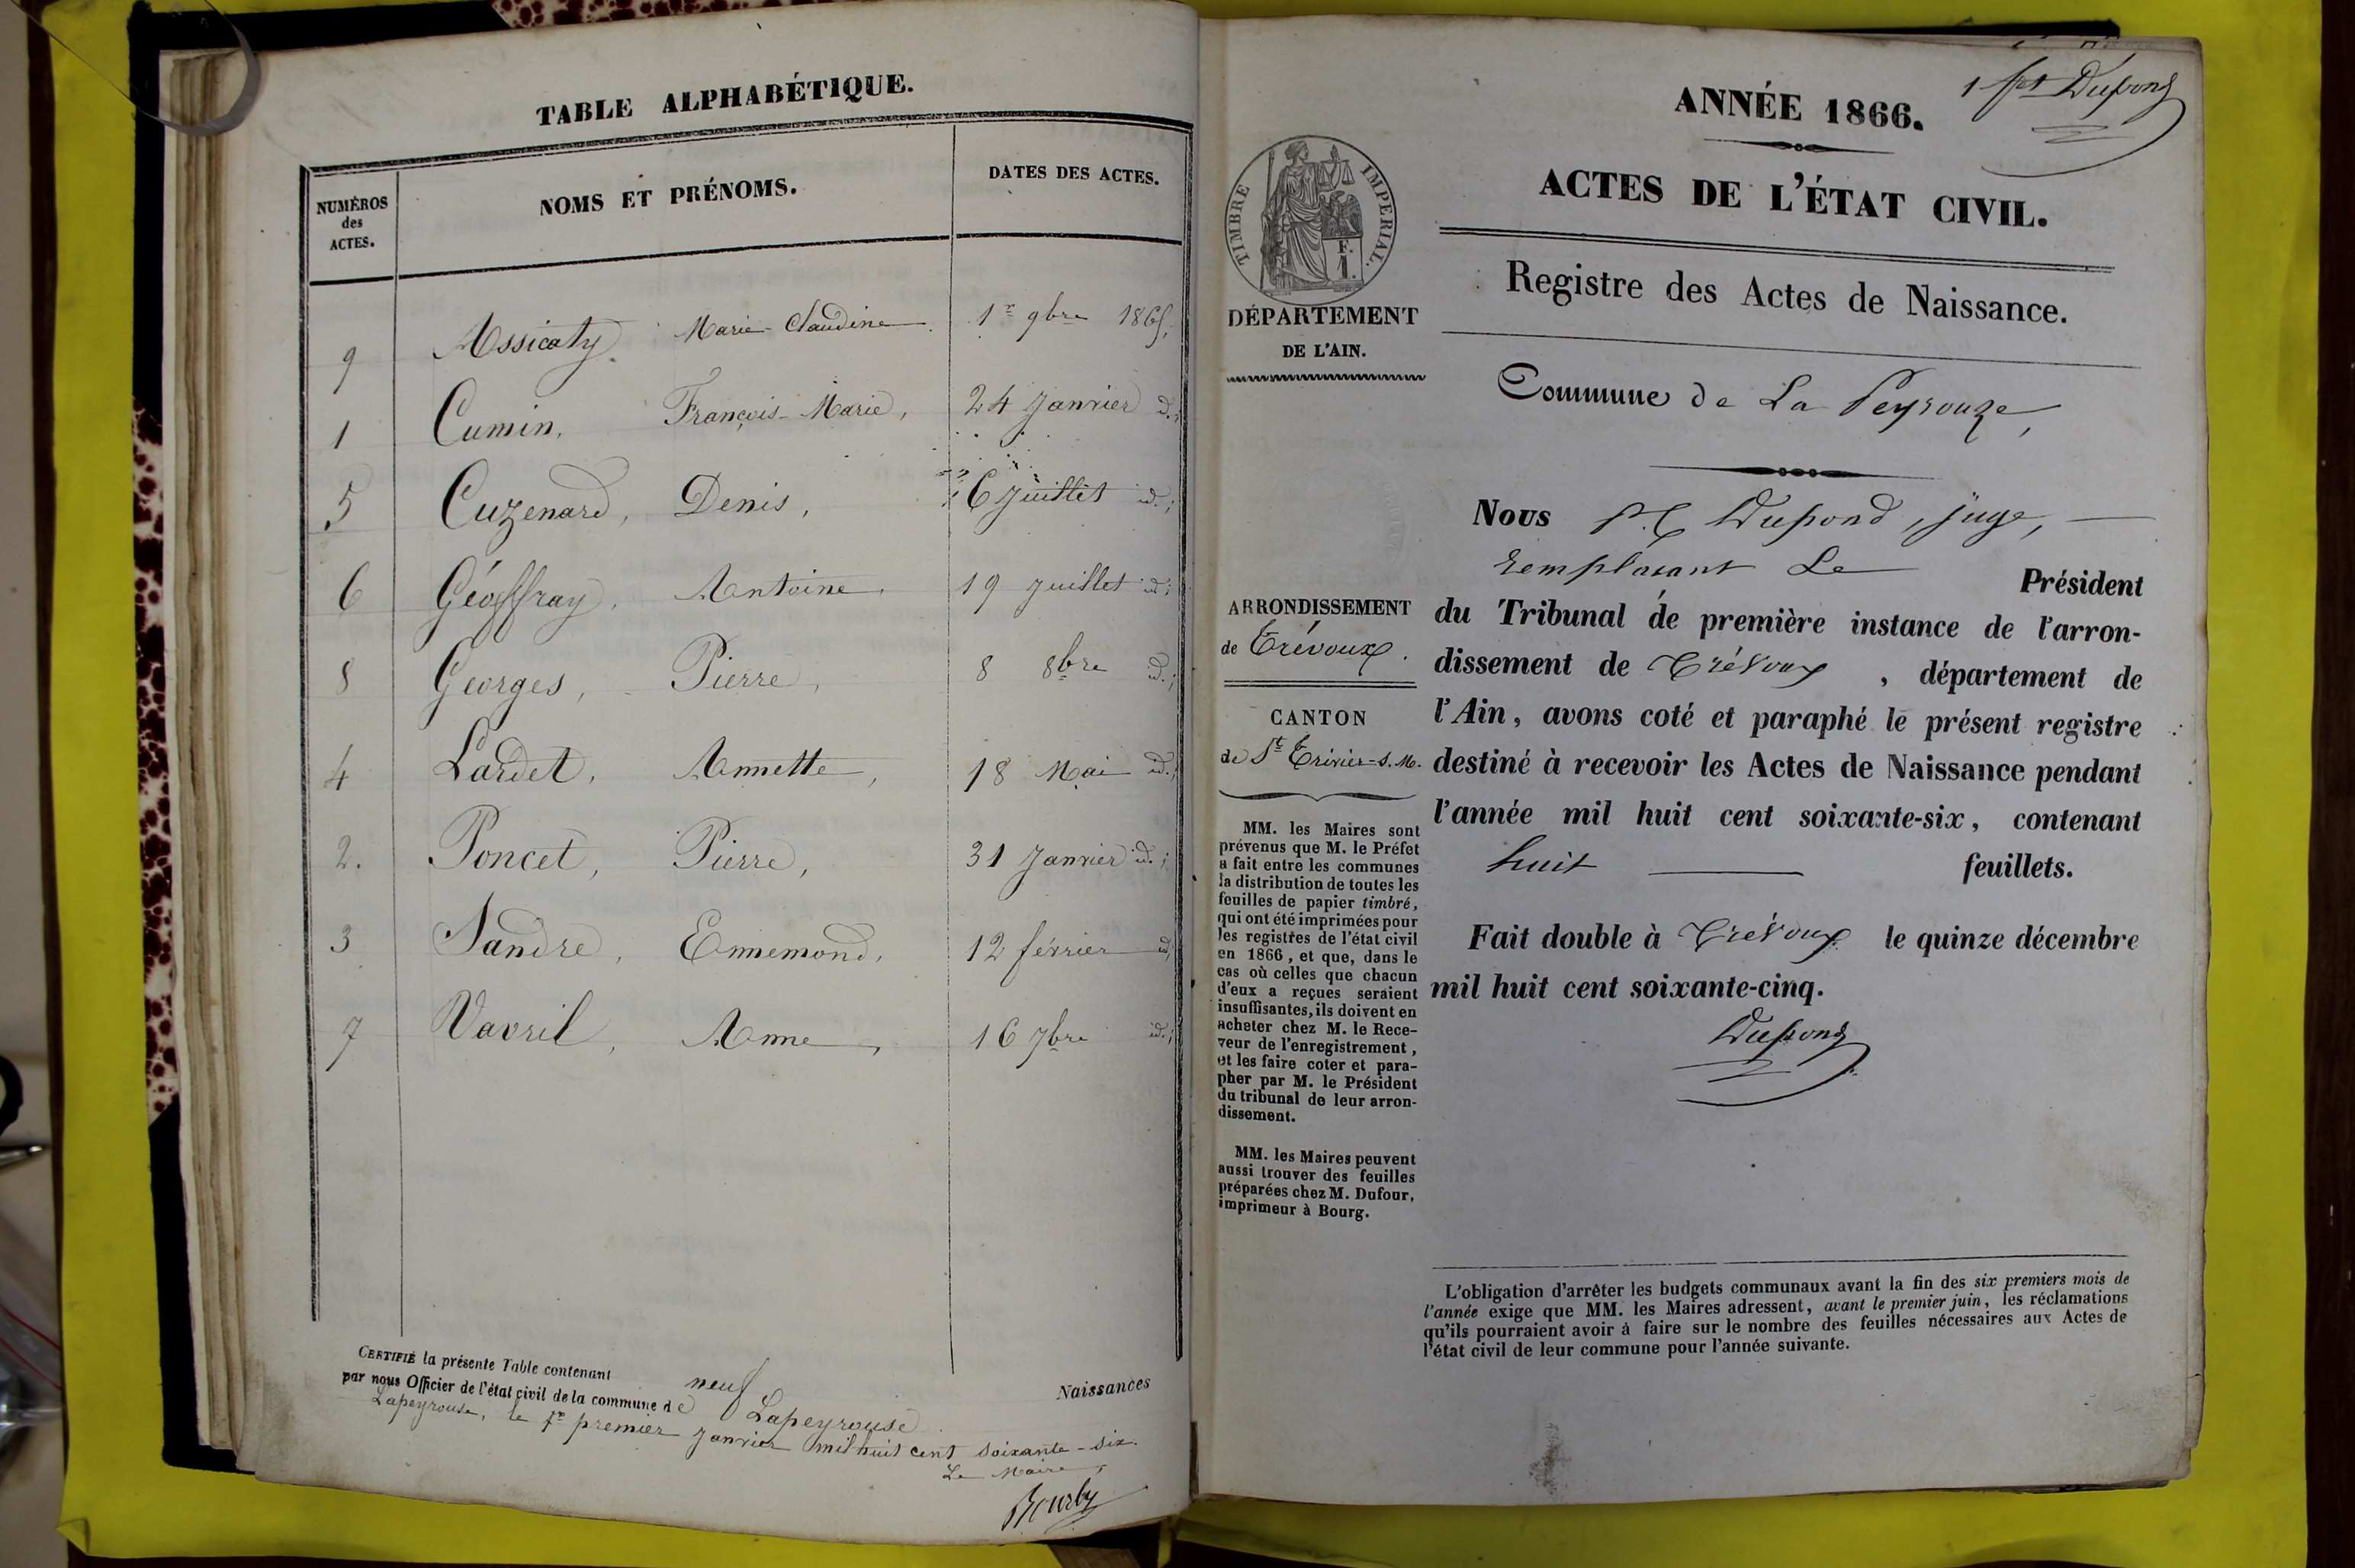 TABLE ALPHABÉTIQUE.
NUMÉROS des ACTES. NOMS ET PRÉNOMS. DATES DES ACTES.
9 Assicaty. Marie-Claudine. 1er 9bre 1865;
1 Cumin, François-Marie, 24 Janvier id.;
5 Cuzenard, Denis, 6 Juillet id.;
6 Géoffray, Antoine, 19 Juillet id.;
8 Georges, Pierre, 8 8bre id.;
4 Lardet, Annette, 18 Mai id.;
2. Poncet, Pierre, 31 Janvier id.;
3 Sandre, Ennemond, 12 février id.
7 Vavril, Anne, 16 7bre id.;
CERTIFIÉ la présente Table contenant neuf Naissances
par nous Officier de l'état civil de la commune de Lapeyrouse.
Lapeyrouse, le 1er premier Janvier mil huit cent soixante-six.
Le Maire,
Bourby
1 Dupond
ANNÉE 1866.
ACTES DE L'ÉTAT CIVIL.
Registre des Actes de Naissance.
TIMBRE IMPÉRIAL.
F.
1.
DÉPARTEMENT
DE L'AIN.
ARRONDISSEMENT
de Trévoux.
CANTON
de St Trivier-s.M.
MM. les Maires sont
prévenus que M. le Préfet
a fait entre les communes
la distribution de toutes les
feuilles de papier timbré,
qui ont été imprimées pour
les registres de l'état civil
en 1866, et que, dans le
cas où celles que chacun
d'eux a reçues seraient
insuffisantes, ils doivent en
acheter chez M. le Rece-
veur de l'enregistrement,
et les faire coter et para-
pher par M. le Président
du tribunal de leur arron-
dissement.
MM. les Maires peuvent
aussi trouver des feuilles
préparées chez M. Dufour,
imprimeur à Bourg.
Commune de La Peyrouze,
Nous Dupond, juge,
remplaçant Le Président
du Tribunal de première instance de l'arron-
dissement de Trévoux, département de
l'Ain, avons coté et paraphé le présent registre
destiné à recevoir les Actes de Naissance pendant
l'année mil huit cent soixante-six, contenant
huit feuillets.
Fait double à Trévoux le quinze décembre
mil huit cent soixante-cinq.
Dupond
L'obligation d'arrêter les budgets communaux avant la fin des six premiers mois de
l'année exige que MM. les Maires adressent, avant le premier juin, les réclamations
qu'ils pourraient avoir à faire sur le nombre des feuilles nécessaires aux Actes de
l'état civil de leur commune pour l'année suivante.